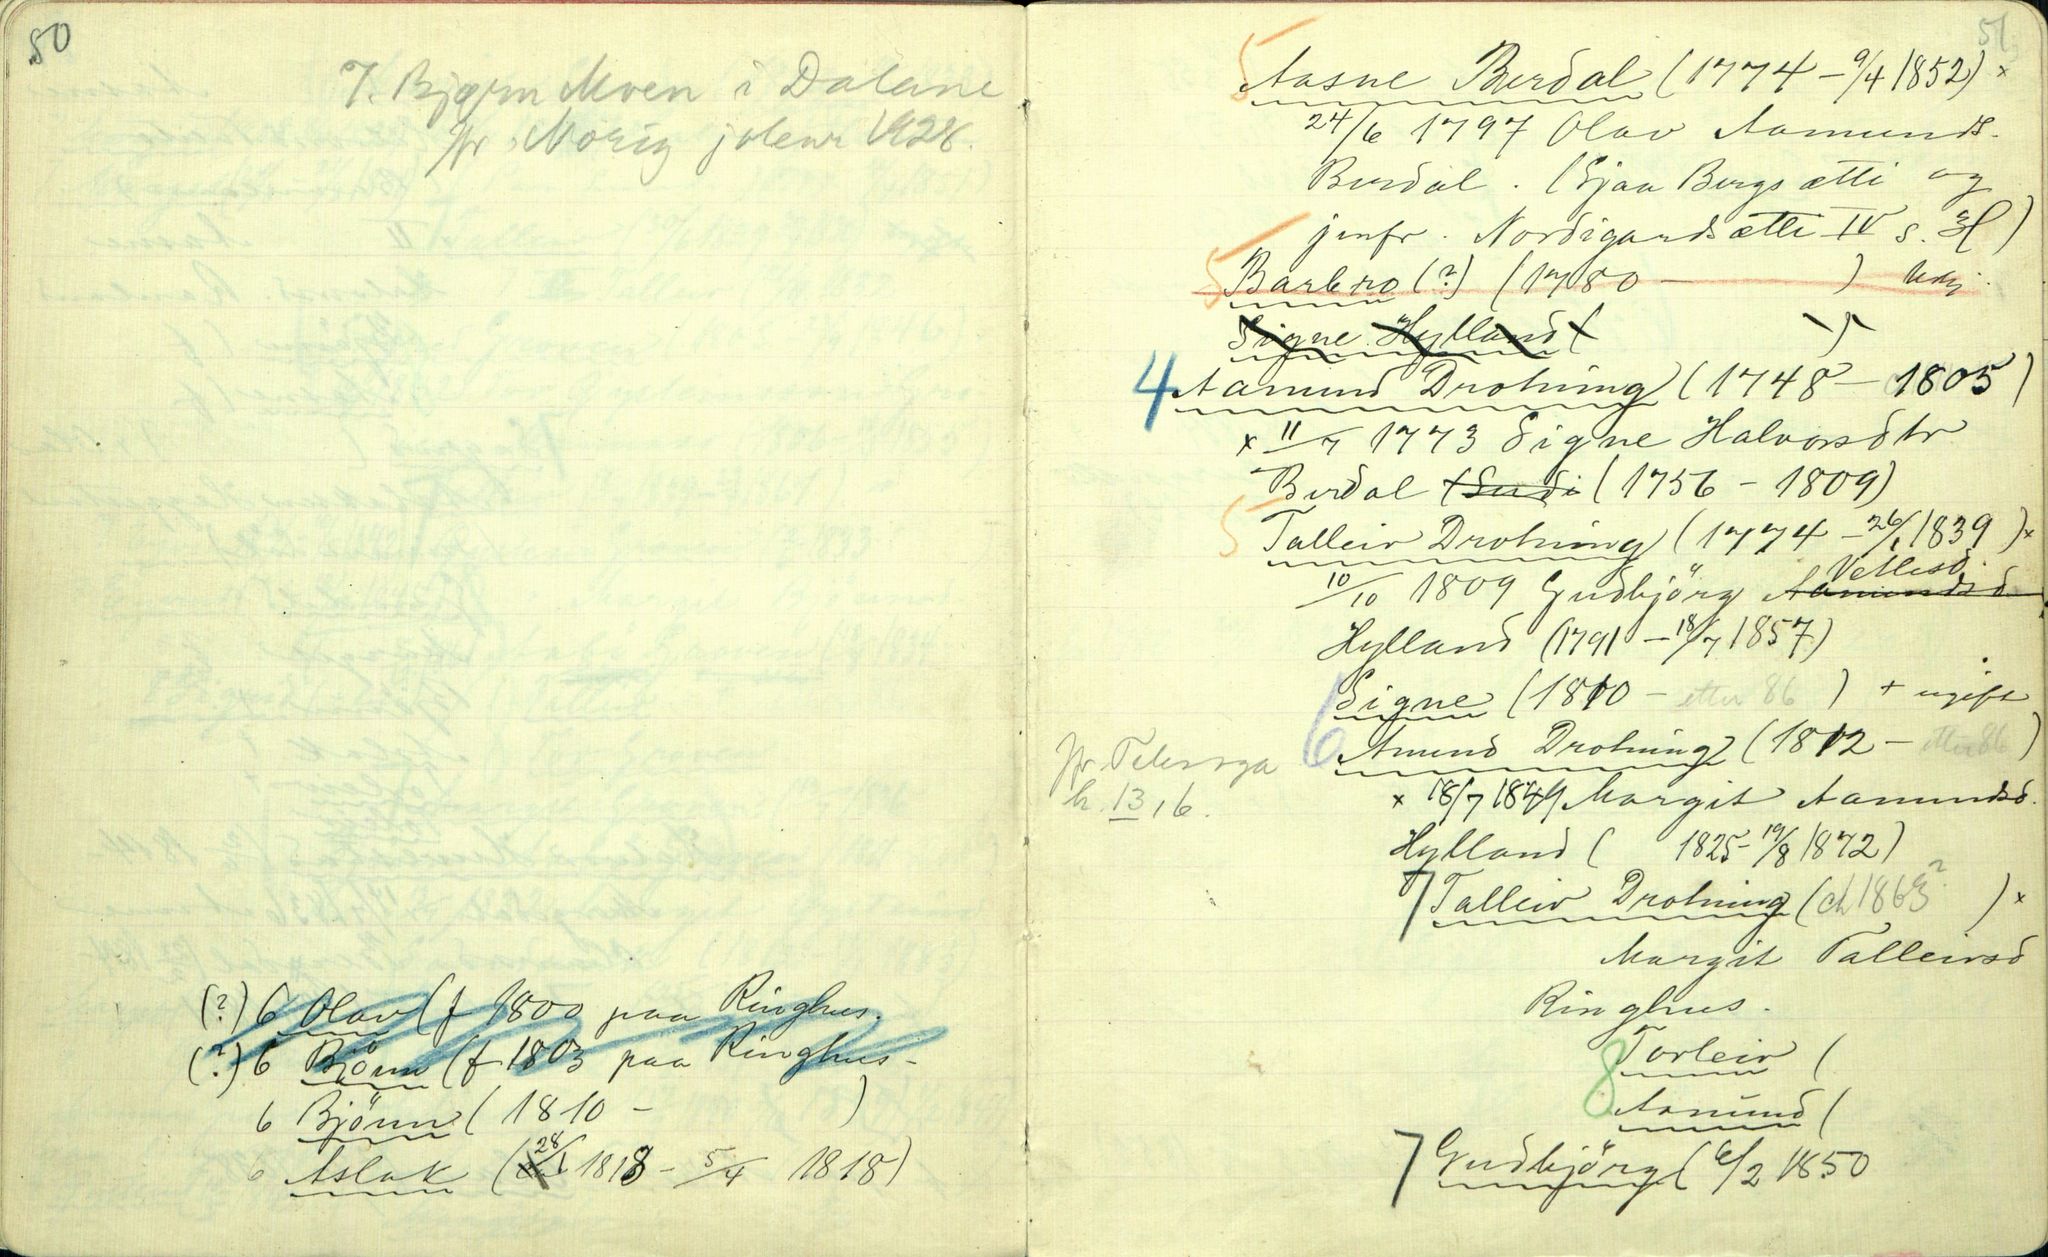 50
7. Bjørn Moen i Dalane
jfr Norig joleur 1928.
(?) 6 Olav (f 1800 paa Ringhus.
(?) 6 Björn (f 1803 paa Ringhus -
6 Björn ( 1810 - )
6 Aslak ( 28/1 1818 - 5/4 1818)
51
5 Aasne Berdal (1774 - 9/4 1852) ×
24/6 1797 Olav Aamunds.
Berdal. (Sjaa Bergsætti og
jmfr. Nordigardsætti IV s. )
5 Barbro (?) (1780 - )
Signe Hylland ( )
4 Aamund Drotning (1748 - 1805)
× 11/7 1773 Signe Halvorsdtr
Berdal (1756 - 1809)
5 Talleiv Drotning (1774 - 26/1 1839) ×
Vetlesd.
10/10 1809 Gudbjörg Aamundsd
Hylland (1791 - 18/7 1857)
Signe (1810 - etter 86 ) + ugift
6 Amund Drotning (1812 - etter 86 )
jfr Telesoga
h. 13, 6.
× 18/7 1849 Margit Aamundsd.
Hylland ( 1825 - 19/8 1872)
7 Talleiv Drotning (ch 1863? ) ×
Margit Talleivsd
Ringhus.
8 Torleiv (
8 Aamund (
7 Gudbjörg ( 6/2 1850